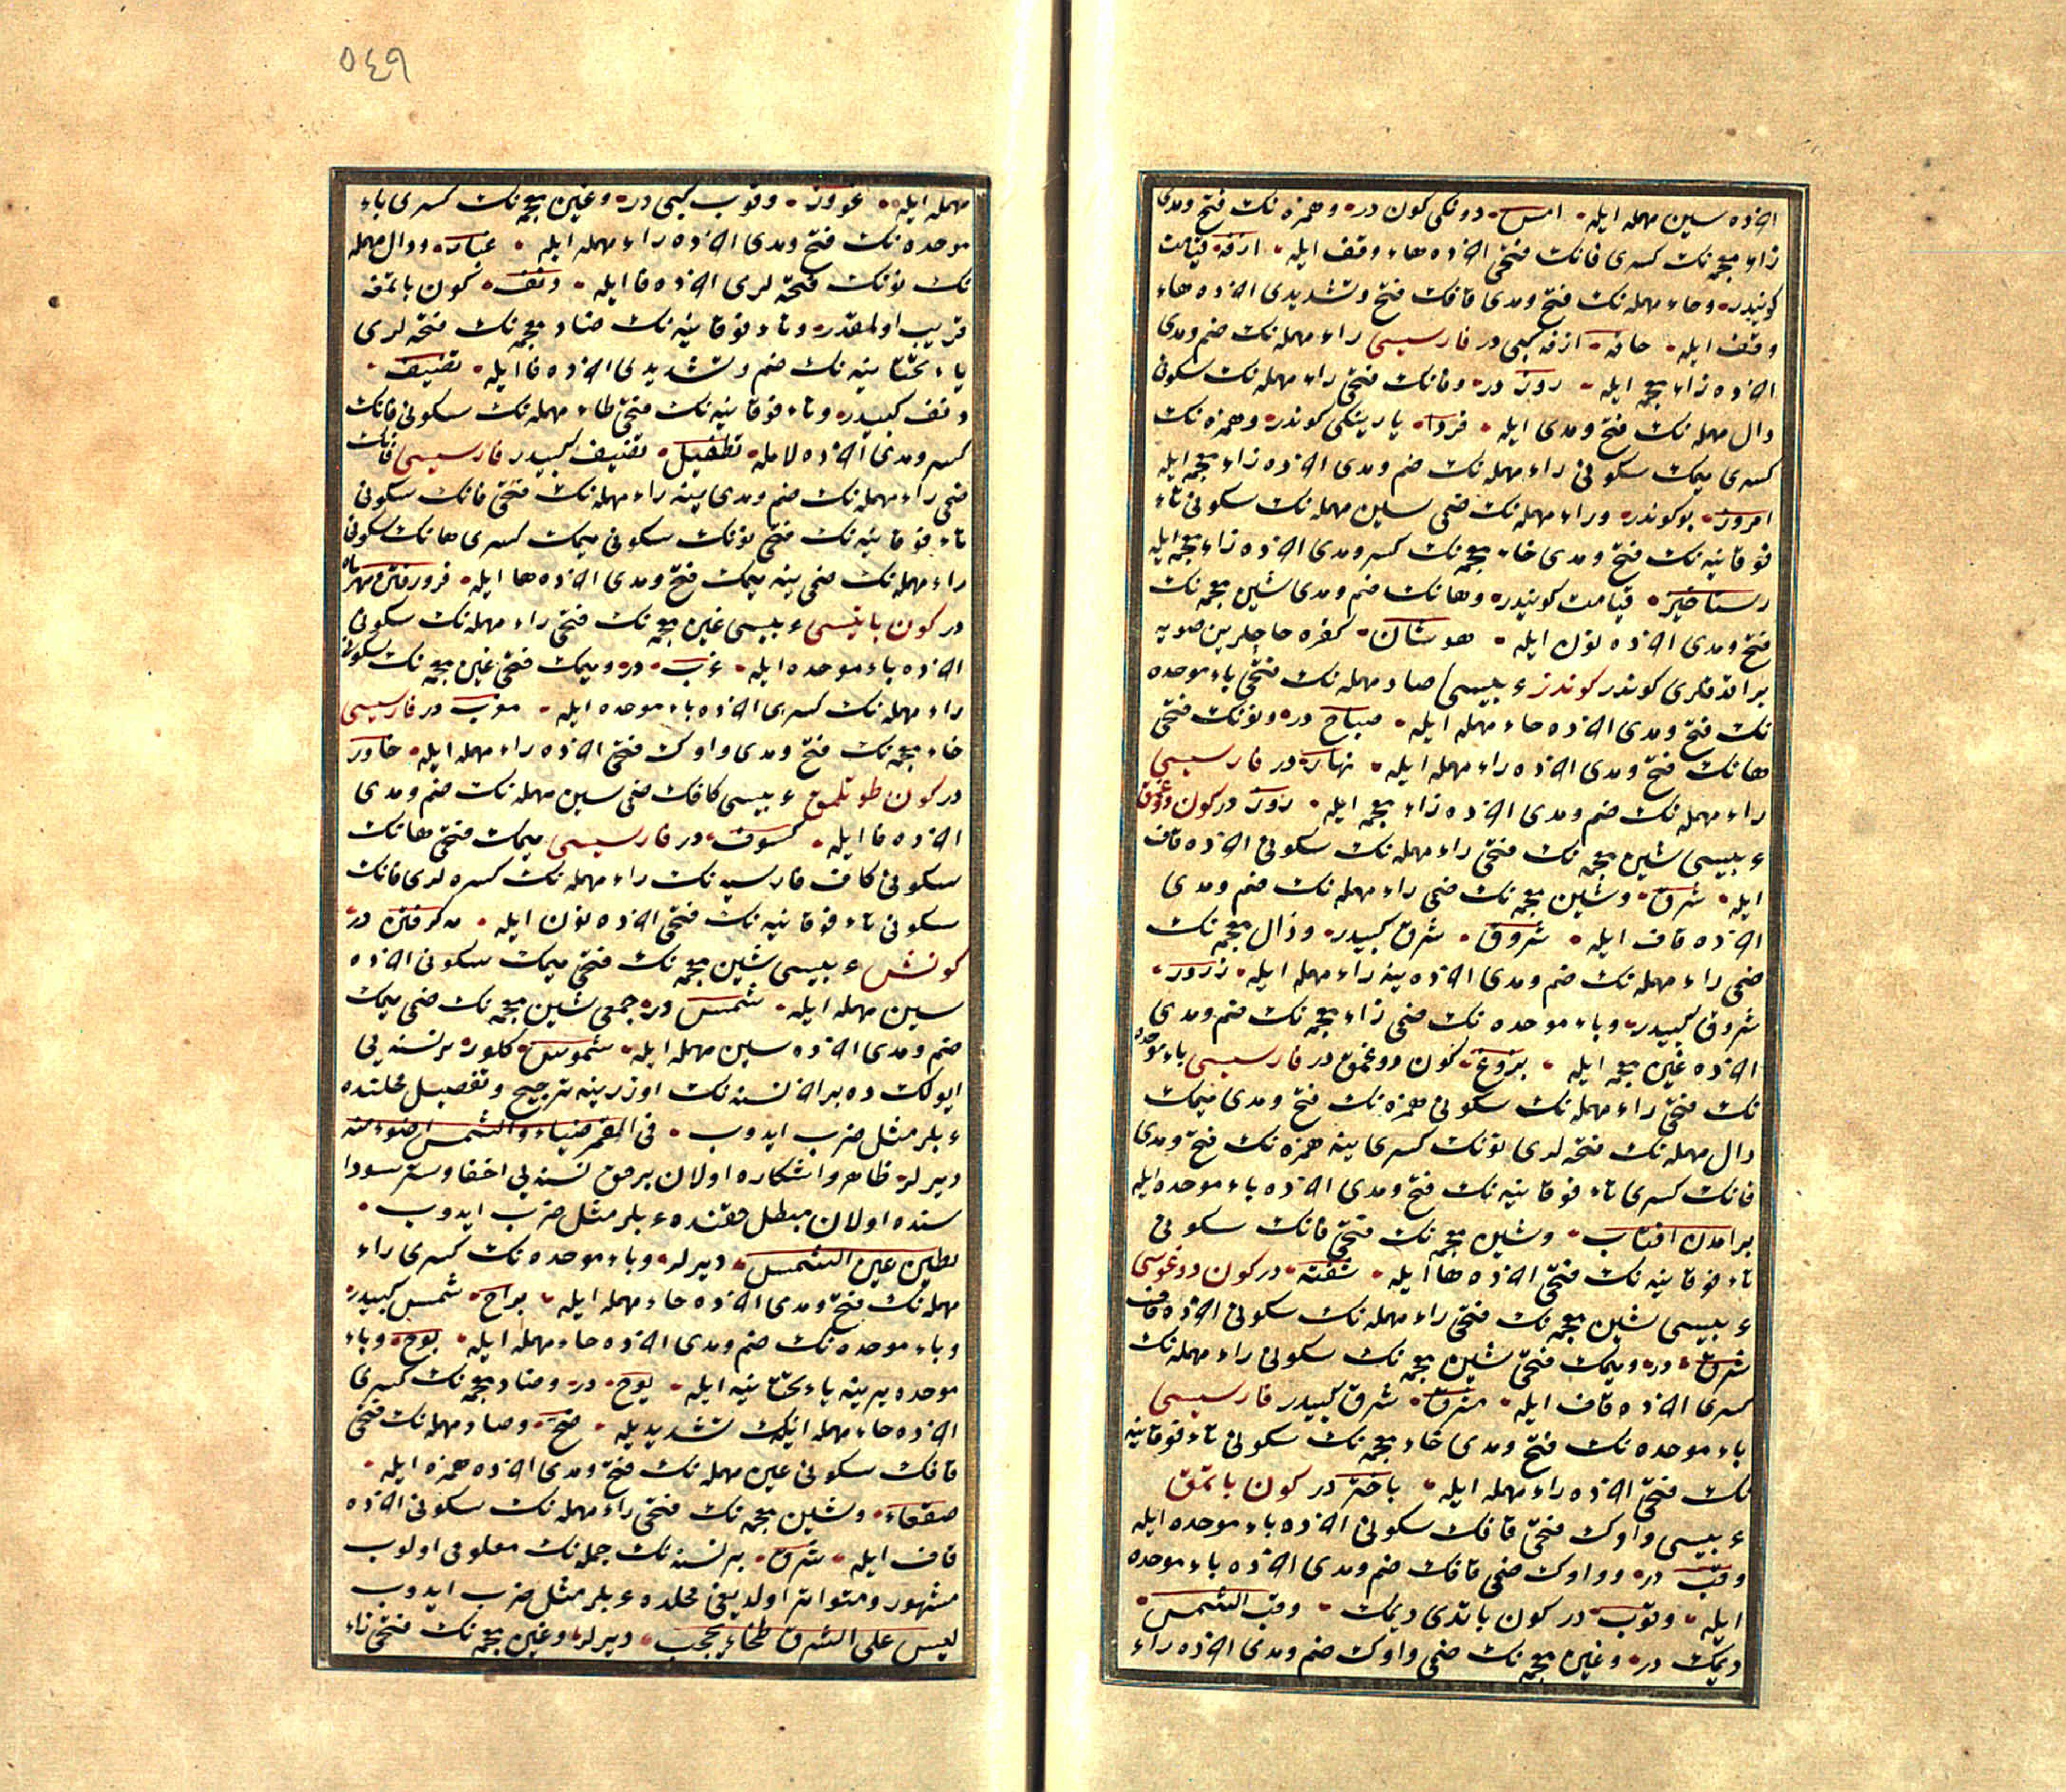 اخرده سين مهمله ايله امس دونكى كون در وهمزه نك فتح ومدى
زاء معجمه نك كسرى فانك فتحى اخرده هاء وقف ايله ازفه قيامت
كونيدر وحاء مهمله نك فتح ومدى قافك فتح وتشديدى اخرده هاء
وقف ايله حاقه ازفه كبى در فارسيسى راء مهمله نك ضم ومدى
اخرده زاء معجمه ايله روز در وفانك فتحى راء مهمله نك سكونى
دال مهمله نك فتح ومدى ايله فردا يارينكى كوندر وهمزه نك
كسرى ميمك سكونى راء مهمله نك ضم ومدى اخرده زاء معجمه ايله
امروز بو كوندر وراء مهمله نك ضمى سين مهمله نك سكونى تاء
فوقانيه نك فتح ومدى خاء معجمه نك كسر ومدى اخرده زاء معجمه ايله
رستاخيز قيامت كونيدر وهانك ضم ومدى شين معجمه نك
فتح ومدى اخرده نون ايله هوشان كفره حاجلرين صويه
براقدقلرى كوندر كوندز عربيسى صاد مهمله نك فتحى باء موحده
نك فتح ومدى اخرده حاء مهمله ايله صباح در ونونك فتحى
هانك فتح ومدى اخرده راء مهمله ايله نهار در فارسيسى
راء مهمله نك ضم ومدى اخرده زاء معجمه ايله روز در كون دوغمق
عربيسى شين معجمه نك فتحى راء مهمله نك سكونى اخرده قاف
ايله شرق وشين معجمه نك ضمى راء مهمله نك ضم ومدى
اخرده قاف ايله شروق شرق كبيدر وذال معجمه نك
ضمى راء مهمله نك ضم ومدى اخرده ينه راء مهمله ايله ذرور
شروق كبيدر وباء موحده نك ضمى زاء معجمه نك ضم ومدى
اخرده غين معجمه ايله بزوغ كون دوغمق در فارسيسى باء موحده
نك فتحى راء مهمله نك سكونى همزه نك فتح ومدى ميمك
دال مهمله نك فتحه لرى نونك كسرى ينه همزه نك فتح ومدى
فانك كسرى تاء فوقانيه نك فتح ومدى اخرده باء موحده ايله
برامدن افتاب وشين معجمه نك فتحى فانك سكونى
تاء فوقانيه نك فتحى اخرده ها ايله شفته در كون دوغوسى
عربيسى شين معجمه نك فتحى راء مهمله نك سكونى اخرده قاف
شرق در وميمك فتحى شين معجمه نك سكونى راء مهمله نك
كسرى اخرده قاف ايله مشرق شرق كبيدر فارسيسى
باء موحده نك فتح ومدى خاء معجمه نك سكونى تاء فوقانيه
نك فتحى اخرده راء مهمله ايله باختر در كون باتمق
عربيسى واوك فتحى قافك سكونى اخرده باء موحده ايله
وقب در وواوك ضمى قافك ضم ومدى اخرده باء موحده
ايله وقوب در كون باتدى ديمك وقب الشمس
ديمك در وغين معجمه نك ضمى واوك ضم ومدى اخرده راء
٥٤٩
مهمله ايله غوور وقوب كبى در وغين معجمه نك كسرى باء
موحده نك فتح ومدى اخرده راء مهمله ايله غبار ودال مهمله
نك نونك فتحه لرى اخرده فا ايله دنف كون باتمغه
قريب اولمقدر وتاء فوقانيه نك ضاد معجمه نك فتحه لرى
ياء تحتانيه نك ضم وتشديدى اخرده فا ايله تضيف
دنف كبيدر وتاء فوقانيه نك فتحى طاء مهمله نك سكونى فانك
كسر ومدى اخرده لامله تطفيل تضيف كبيدر فارسيسى فانك
ضمى راء مهمله نك ضم ومدى ينه راء مهمله نك فتحى فانك سكونى
تاء فوقانيه نك فتحى نونك سكونى ميمك كسرى هانك سكونى
راء مهمله نك ضمى ينه ميمك فتح ومدى اخرده ها ايله فرورفتن مهر
در كون باتيسى عربيسى غين معجمه نك فتحى راء مهمله نك سكونى
اخرده باء موحده ايله غرب در وميمك فتحى غين معجمه نك سكونى
راء مهمله نك كسرى اخرده باء موحده ايله مغرب در فارسيسى
خاء معجمه نك فتح ومدى واوك فتحى اخرده راء مهمله ايله خاور
در كون طوتلمق عربيسى كافك ضمى سين مهمله نك ضم ومدى
اخرده فا ايله كسوف در فارسيسى ميمك فتحى هانك
سكونى كاف فارسيه نك راء مهمله نك كسره لرى فانك
سكونى تاء فوقانيه نك فتحى اخرده نون ايله مه كرفتن در
كونش عربيسى شين معجمه نك فتحى ميمك سكونى اخرده
سين مهمله ايله شمس در جمعى شين معجمه نك ضمى ميمك
ضم ومدى اخرده سين مهمله ايله شموس كلور برنسنه يى
ايولكده بر اخر نسنه نك اوزرينه ترجيح وتفضيل محلنده
عربلر مثل ضرب ايدوب فى القمر ضياء والشمس اضوء منه
ديرلر ظاهر واشكاره اولان بر حق نسنه يى اخفا وستر سودا
سنده اولان مبطل حقنده عربلر مثل ضرب ايدوب
يطين عين الشمس ديرلر وباء موحده نك كسرى راء
مهمله نك فتح ومدى اخرده حاء مهمله ايله براح شمس كبيدر
وباء موحده نك ضم ومدى اخرده حاء مهمله ايله بوح وباء
موحده يرينه ياء تحتانيه ايله يوح در وضاد معجمه نك كسرى
اخرده حاء مهمله ايكيك تشديديله ضح وصاد مهمله نك فتحى
قافك سكونى عين مهمله نك فتح ومدى اخرده همزه ايله
صقعاء وشين معجمه نك فتحى راء مهمله نك سكونى اخرده
قاف ايله شرق برنسنه نك جمله نك معلومى اولوب
مشهور ومتواتر اولديغى محلده عربلر مثل ضرب ايدوب
ليس على الشرق طخاء يحجب ديرلر وغين معجمه نك فتحى زاء